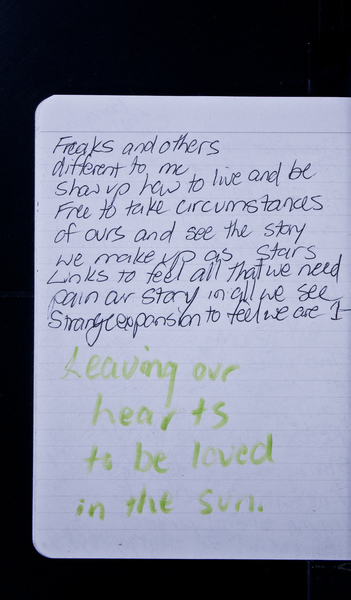 Freaks and others
different to me
show up how to live and be
Free to take circumstances
of ours and see the story
we make up as stars
Links to feel all that we need
pain our story in all we see
Strange expansion to feel we are 1-
Leaving our
hearts
to be loved
in the sun.